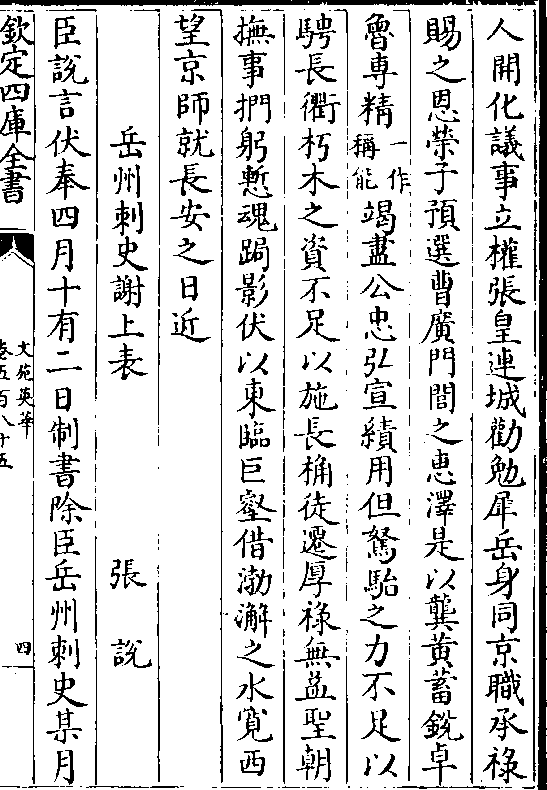 人開化議事立權張皇連城勸勉犀岳身同京職承祿
賜之恩榮子預選曹廣門閭之惠澤是以龔黄蓄銳卓
魯專精一作稱能竭盡公忠弘宣績用但駑駘之力不足以
騁長衢朽木之資不足以施長桷徒遷厚祿無益聖朝
撫事捫躬慙魂跼影伏以東臨巨壑借渤澥之水寛西
望京師就長安之日近
岳州刺史謝上表　張說
臣說言伏奉四月十有二日制書除臣岳州刺史某月
欽定四庫全書
文苑英華
卷五百八十五
四